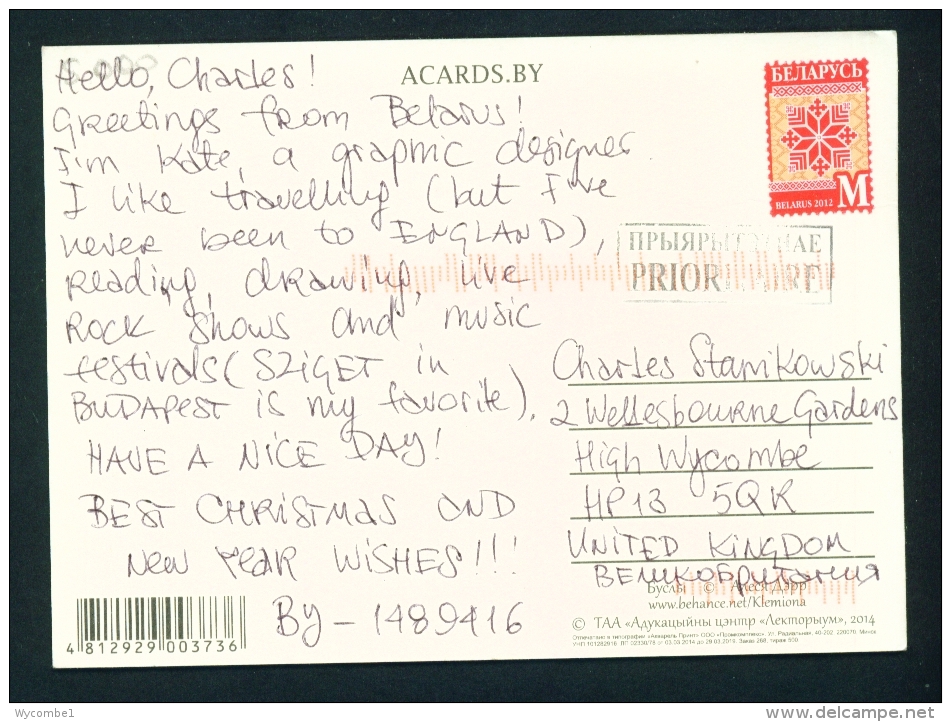 Hello, Charles!
Greetings from Belarus!
I'm Kate, a graphic designer
I like travelling (but I've
never been to ENGLAND),
reading, drawing, live
ROCK shows and music
festivals (SZIGET in
BUDAPEST is my favorite).
HAVE A NICE DAY!
BEST CHRISTMAS AND
NEW YEAR WISHES!!!
BY - 1489416
4 812929 003736
ACARDS.BY
БЕЛАРУСЬ
BELARUS 2012 M
PRIOR
Charles Stamikowski
2 Wellesbourne Gardens
High Wycombe
HP13 5QR
UNITED KINGDOM
ВЕЛИКОБРИТАНИЯ
Буслы © Алеся Дэрр
www.behance.net/Klemiona
© ТАА «Адукацыйны цэнтр «Лекторыум», 2014
Wycombe1
www.delcampe.net